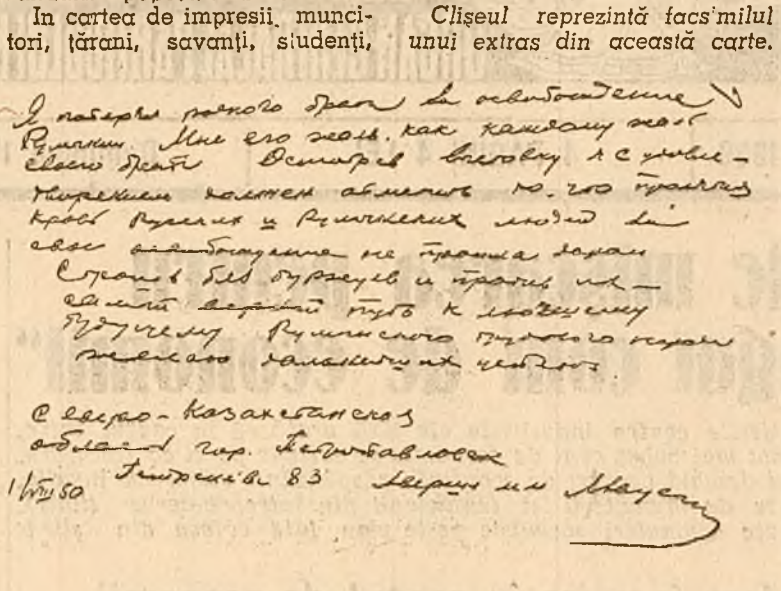 In cartea de impresii, munci-
tori, țărani, savanți, studenți,
Clișeul reprezintă facs'milul
unui extras din această carte.
Я потерял родного брата за освобождение
Румынии Мне его жаль, как каждому жаль
своего брата Осмотрев выставку я с удовле-
творением должен отметить то, что пролитая
кровь Русских и Румынских людей за
свое освобождение не прошла даром
Строить без буржуев и против их
самый верный путь к
будущему Румынского трудового народа
желаю дальнейших успехов.
Северо-Казахстанская
область гор. Петропавловск
83
1/VIII 50